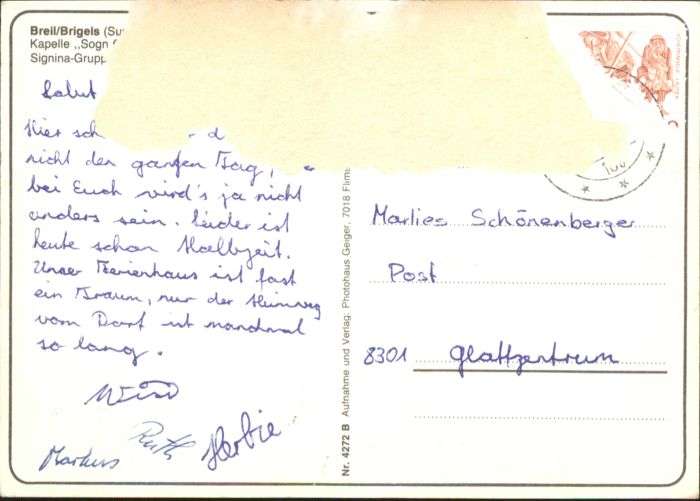 Breil/Brigels
Kapelle „Sogn
Signina-Grupp
Salut
Hier
nicht den ganzen Tag,
bei Euch wird's ja nicht
anders sein. Leider ist
heute schon Halbzeit.
Unser Ferienhaus ist fast
ein Traum, nur der Heimweg
vom Dorf ist manchmal
so lang.
Ruth Herbie
Markus
Nr. 4272 B Aufnahme und Verlag: Photohaus Geiger, 7018 Flims
Marlies Schönenberger
Post
8301 Glattzentrum